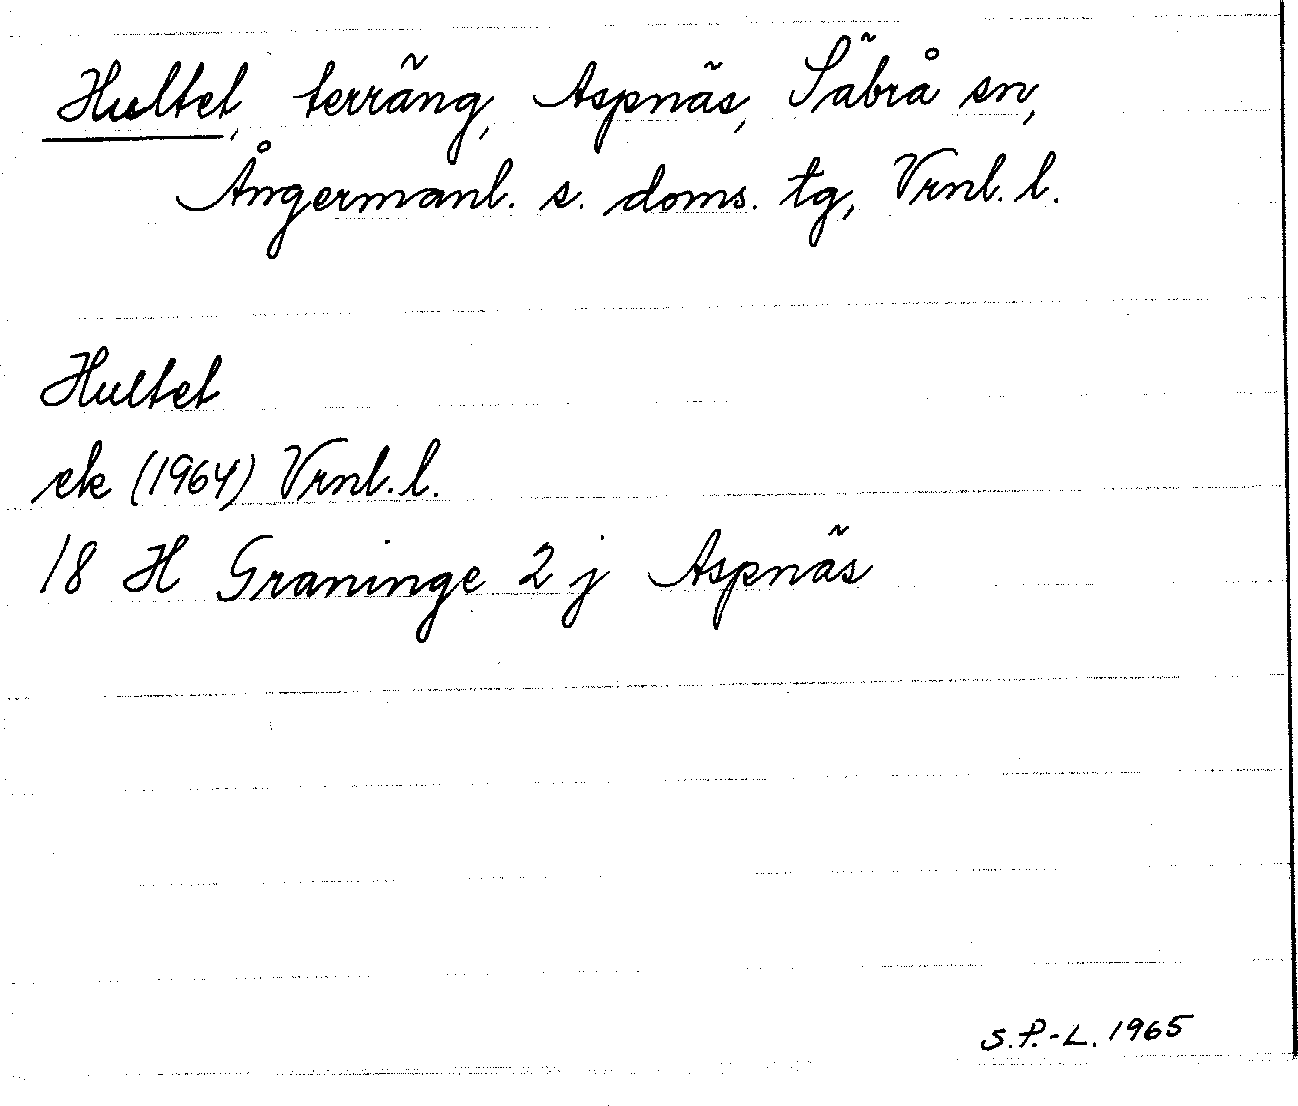 Hultet, terräng, Aspnäs, Säbrå sn,
Ångermanl. s. doms. tg, Vrnl. l.
Hultet
ek (1964) Vrnl. l.
18 H Graninge 2 j Aspnäs
S.P.-L. 1965